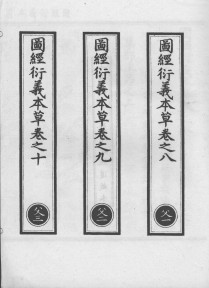 圖經衍義本草卷之八
父一
圖經衍義本草卷之九
父二
圖經衍義本草卷之十
父三